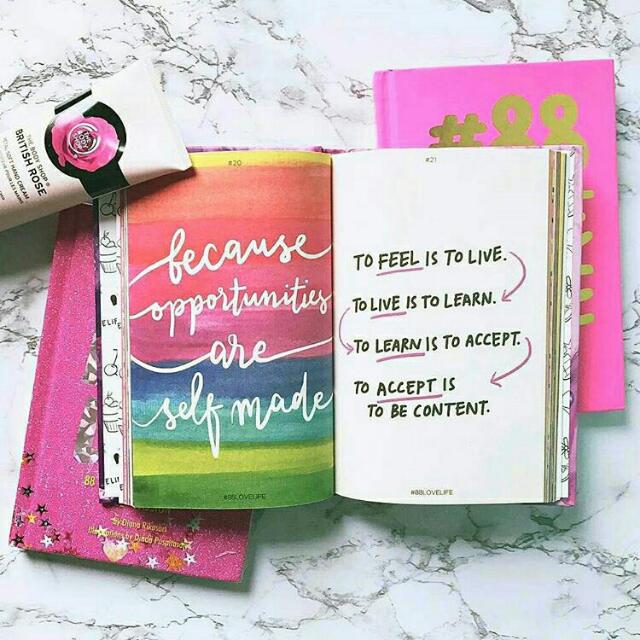 THE BODY SHOP®
BRITISH ROSE
HAND CREAM
#20
because
opportunities
are
self made
#88LOVELIFE
#21
TO FEEL IS TO LIVE.
TO LIVE IS TO LEARN.
TO LEARN IS TO ACCEPT.
TO ACCEPT IS
TO BE CONTENT.
#88LOVELIFE
#88
88
By Diana Rikasari